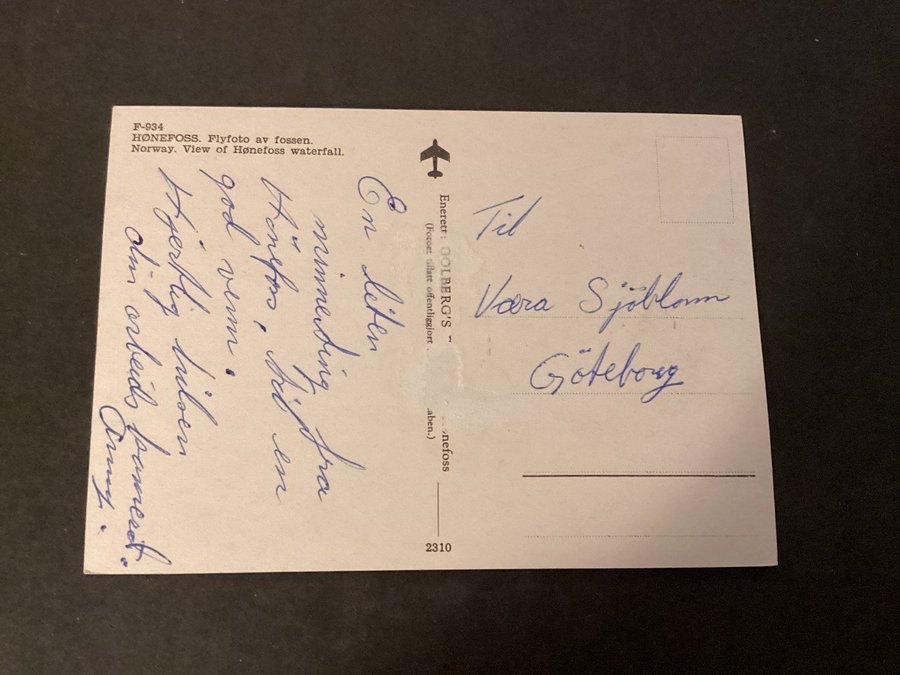 F-934
HØNEFOSS. Flyfoto av fossen.
Norway. View of Hønefoss waterfall.
En liten
minnedning fra
Hönefos, til en
god venn.
Hjertlig hilsen
din arbeids kamerat.
Enerett: GOLBERG'S
nefoss
(Fotoet tillatt offentliggjort
2310
Til
Væra Sjöblom
Göteborg